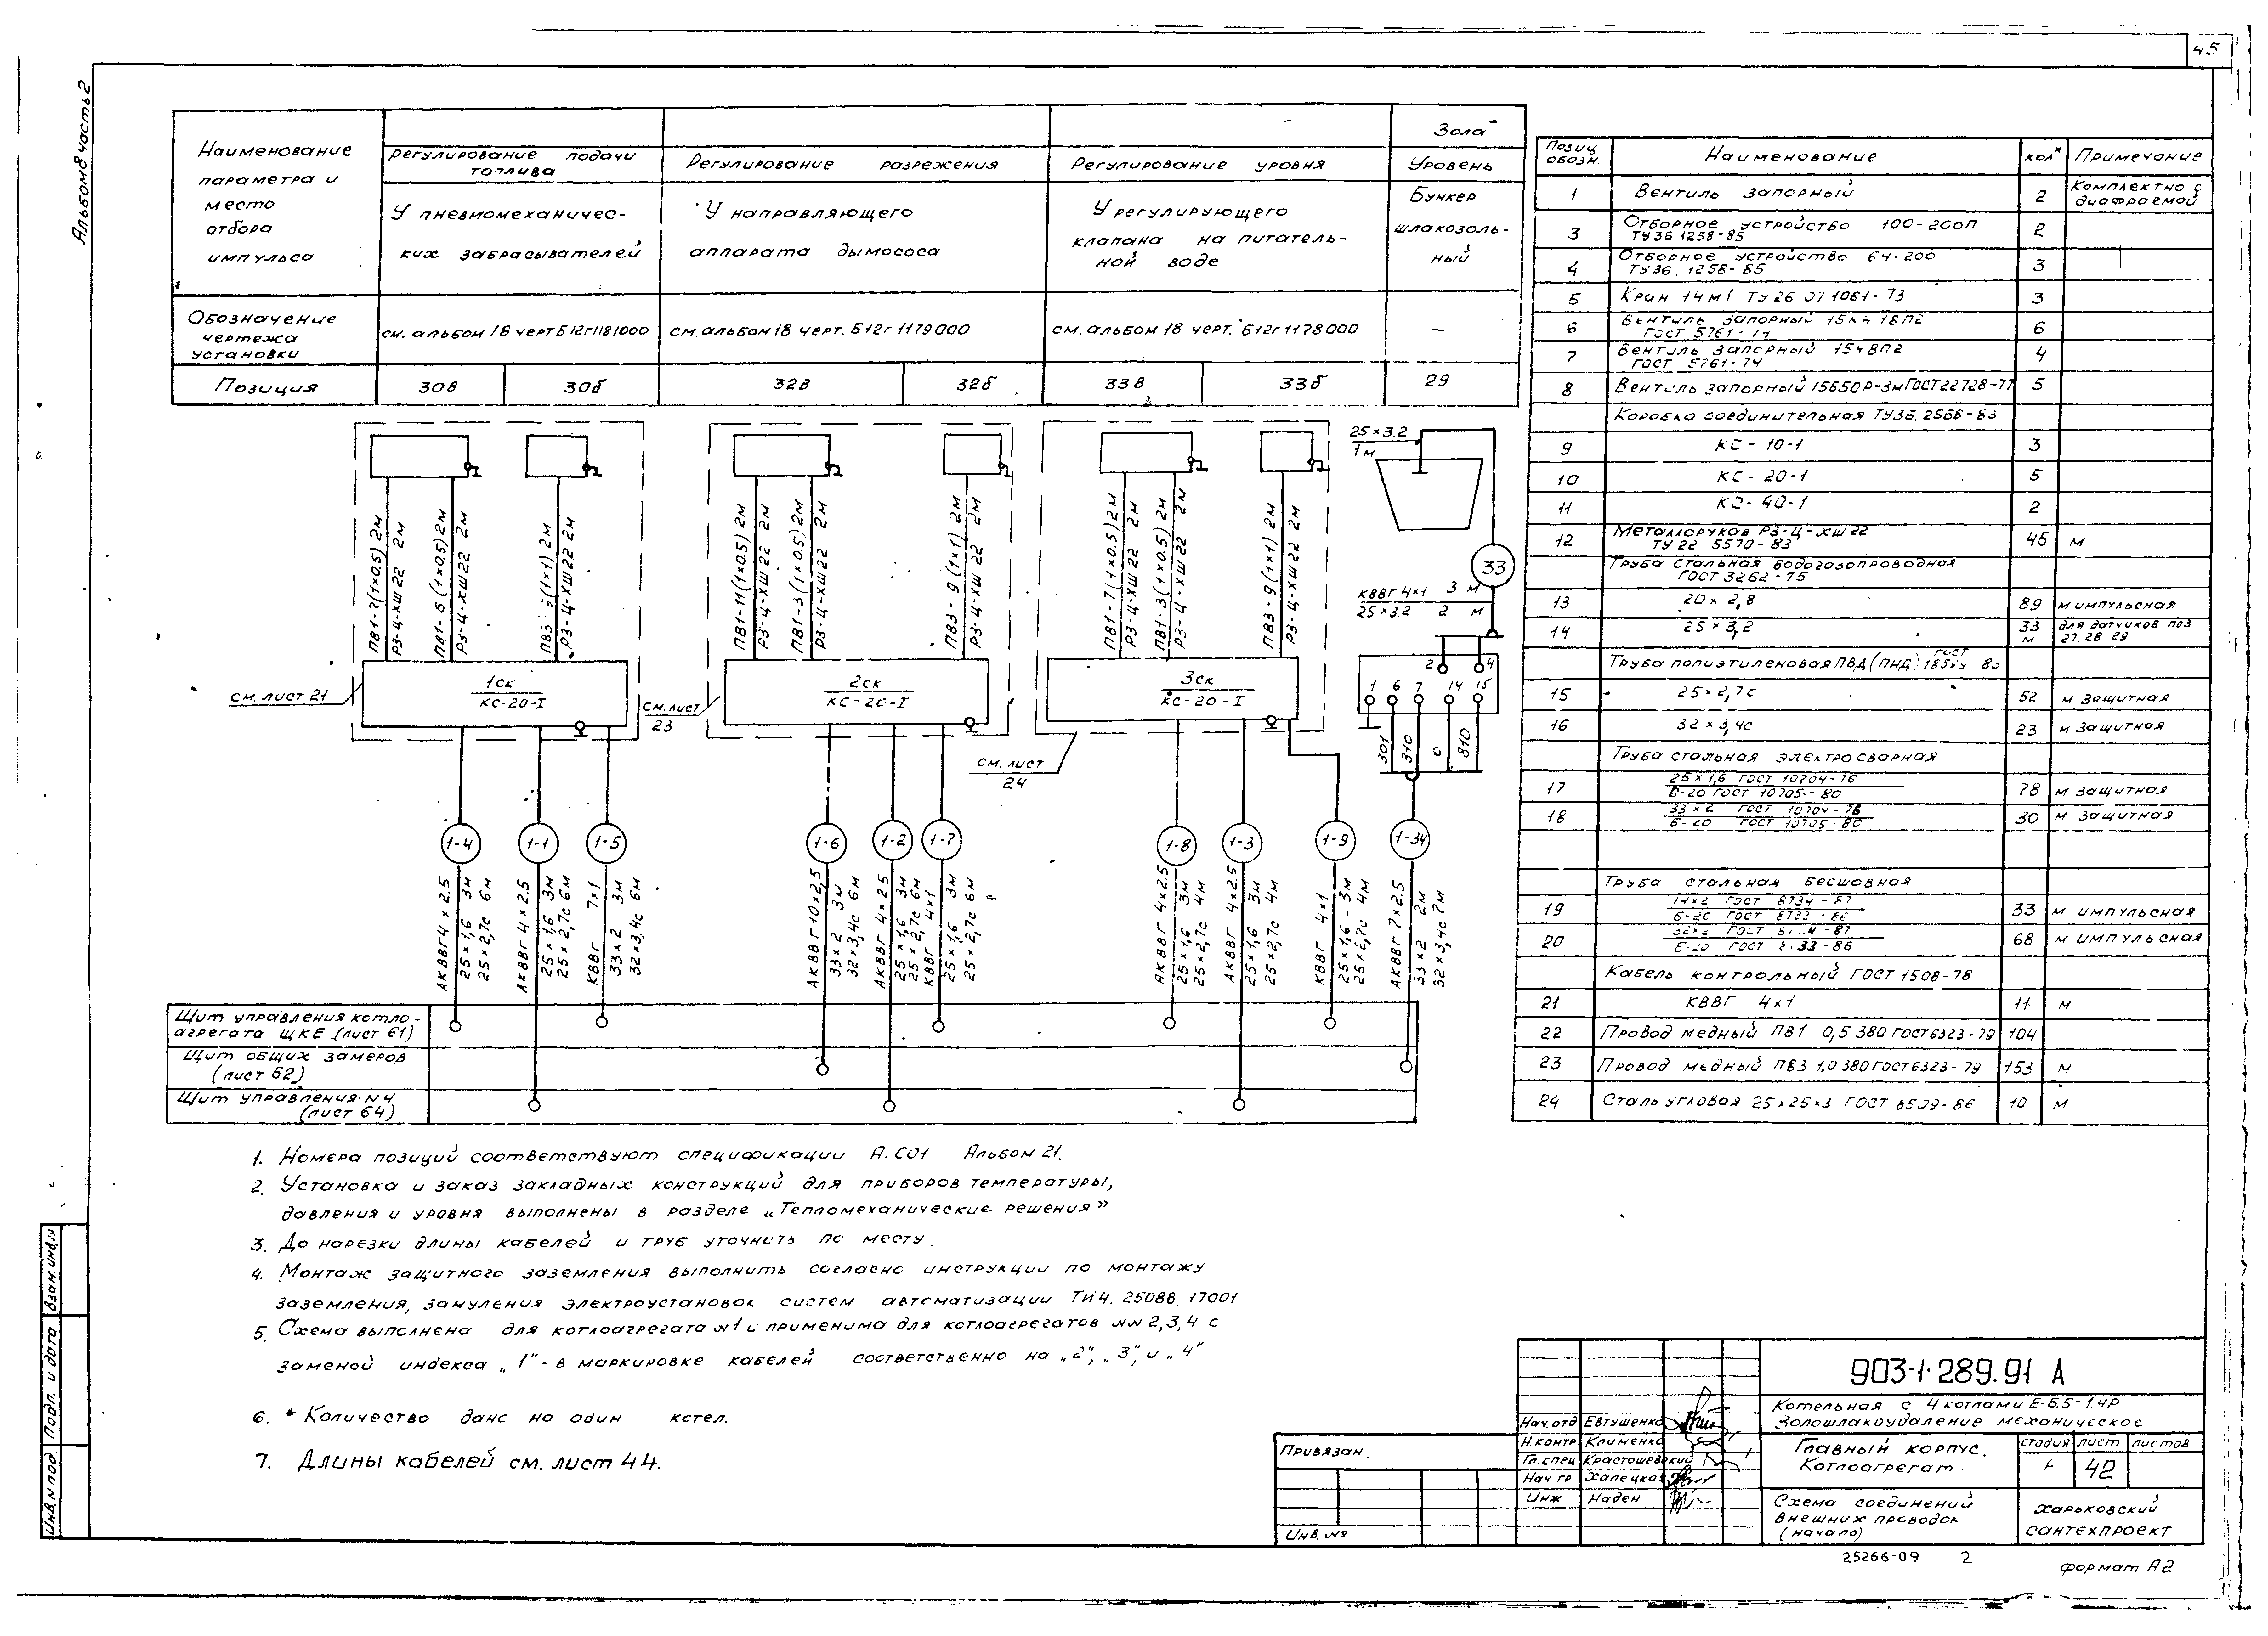 45
Альбом 8 часть 2
Наименование
параметра и
место
отбора
импульса
Регулирование подачи
топлива
Регулирование разрежения
Регулирование уровня
Зола
Уровень
У пневмомеханичес-
ких забрасывателей
У направляющего
аппарата дымососа
У регулирующего
клапана на питатель-
ной воде
Бункер
шлакозоль-
ный
Обозначение
чертежа
установки
см. альбом 18 черт Б12г1181000
см. альбом 18 черт. Б12г 1179000
см. альбом 18 черт. Б12г 1178000
—
Позиция
30в
30б
32в
32б
33в
33б
29
ПВ1-7(1×0.5) 2м
РЗ-Ц-ХШ 22 2м
ПВ1-6 (1×0.5) 2м
РЗ-Ц-ХШ 22 2м
(1×1) 2м
РЗ-Ц-ХШ 22 2м
ПВ1-11(1×0.5) 2м
РЗ-Ц-ХШ 22 2м
ПВ1-3(1×0.5) 2м
РЗ-Ц-ХШ 22 2м
ПВ3-9 (1×1) 2м
РЗ-Ц-ХШ 22 2м
ПВ1-7(1×0.5) 2м
РЗ-Ц-ХШ 22 2м
ПВ1-3(1×0.5) 2м
РЗ-Ц-ХШ 22 2м
ПВ3-9(1×1) 2м
РЗ-Ц-ХШ 22 2м
25×3.2
1м
33
КВВГ 4×1 3 м
25×3.2 2 м
2 4
1 6 7 14 15
301 310 0 810
1ск
КС-20-I
2ск
КС-20-I
3ск
КС-20-I
см. лист 21
см. лист
23
см. лист
24
1-4
1-1
1-5
1-6
1-2
1-7
1-8
1-3
1-9
1-34
АКВВГ 4×2.5
25×1,6 3м
25×2,7с 6м
АКВВГ 4×2.5
25×1,6 3м
25×2,7с 6м
КВВГ 7×1
33×2 3м
32×3,4с 6м
АКВВГ 10×2,5
33×2 3м
32×3,4с 6м
АКВВГ 4×2.5
25×1,6 3м
25×2,7с 6м
КВВГ 4×1
25×1,6 3м
25×2,7с 6м
АКВВГ 4×2.5
25×1,6 3м
25×2,7с 4м
АКВВГ 4×2.5
25×1,6 3м
25×2,7с 4м
КВВГ 4×1
25×1,6 - 3м
4м
АКВВГ 7×2.5
33×2 2м
32×3,4с 7м
Щит управления котло-
агрегата ЩКЕ (лист 61)
Щит общих замеров
(лист 62)
Щит управления N4
(лист 64)
Позиц обозн. Наименование кол* Примечание
1 Вентиль запорный 2 Комплектно с диафрагмой
3 Отборное устройство 100-200П ТУ36 1258-85 2
4 Отборное устройство 64-200 ТУ36. 1258-85 3
5 Кран 14м1 ТУ26 07 1061-73 3
6 Вентиль запорный ГОСТ 5761-74 6
7 Вентиль запорный ГОСТ 5761-74 4
8 Вентиль запорный ГОСТ 22728-77 5
Коробка соединительная
9 КС-10-1 3
10 КС-20-1 5
11 КС-40-1 2
12 Металлорукав РЗ-Ц-ХШ 22 ТУ 22 5570-83 45 м
Труба стальная водогазопроводная
ГОСТ 3262-75
13 20×2,8 89 м импульсная
14 25×3,2 33 м для датчиков поз 27. 28 29
Труба полиэтиленовая ПВД (ПНД) ГОСТ
15 25×2,7с 52 м защитная
16 32×3,4с 23 м защитная
Труба стальная электросварная
17 25×1,6 ГОСТ 10704-76 / Б-20 ГОСТ 10705-80 78 м защитная
18 33×2 ГОСТ 10704-76 / Б-20 ГОСТ 10705-80 30 м защитная
Труба стальная бесшовная
19 14×2 ГОСТ 8734-87 / Б-20 ГОСТ 33 м импульсная
20 ГОСТ 68 м импульсная
Кабель контрольный ГОСТ 1508-78
21 КВВГ 4×1 11 м
22 Провод медный ПВ1 0,5 380 ГОСТ 6323-79 104
23 Провод медный ПВ3 1,0 380 ГОСТ 6323-79 153 м
24 Сталь угловая 25×25×3 ГОСТ 8509-86 10 м
1. Номера позиций соответствуют спецификации А.СО1 Альбом 21.
2. Установка и заказ закладных конструкций для приборов температуры,
давления и уровня выполнены в разделе „Тепломеханические решения”
3. До нарезки длины кабелей и труб уточнить по месту.
4. Монтаж защитного заземления выполнить согласно инструкции по монтажу
заземления, зануления электроустановок систем автоматизации ТИ4. 25088. 17001
5. Схема выполнена для котлоагрегата N1 и применима для котлоагрегатов NN 2,3,4 с
заменой индекса „1”- в маркировке кабелей соответственно на „2”, „3”, и „4”
6. * Количество дано на один котел.
7. Длины кабелей см. лист 44.
903-1-289.91 А
Котельная с 4 котлами Е-6.5-1.4Р
Золошлакоудаление механическое
Нач.отд Евтушенко
Н.контр. Клименко
Гл.спец Крастошевский
Нач гр Халецкая
Инж Наден
Главный корпус.
Котлоагрегат.
стадия лист листов
42
Схема соединений
внешних проводок
(начало)
Харьковский
сантехпроект
Привязан.
Инв. №
Инв.N под. Подп. и дата Взам.инв.N
25266-09 2
формат А2